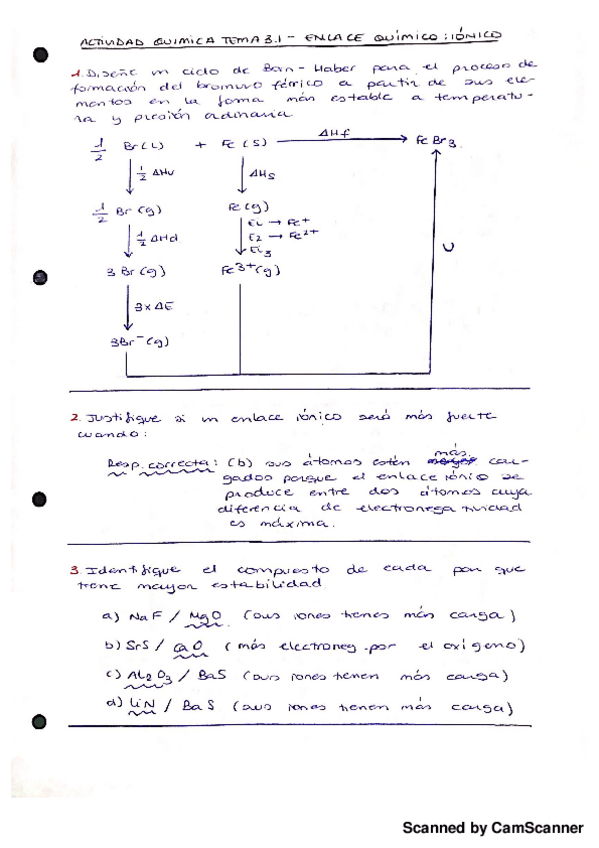 ACTIVIDAD QUIMICA TEMA 3.1 - ENLACE QUÍMICO: IÓNICO
1. Diseñe un ciclo de Born-Haber para el proceso de
formación del bromuro férrico a partir de sus ele-
mentos en la forma más estable a temperatu-
ra y presión ordinaria
1/2 Br(L) + Fe(S) ΔHf FeBr3
1/2 ΔHv ΔHs
1/2 Br(g) Fe(g)
1/2 ΔHd
Ei → Fe+
E2 → Fe2+
Ei3
U
3Br(g) Fe3+(g)
3xΔE
3Br-(g)
2. Justifique si un enlace iónico será más fuerte
cuando:
Resp. correcta: (b) sus átomos estén más car-
gados porque el enlace iónico se
produce entre dos átomos cuya
diferencia de electronegatividad
es máxima.
3. Identifique el compuesto de cada par que
tiene mayor estabilidad
a) NaF / MgO (sus iones tienes más carga)
b) SrS / CaO (más electroneg. por el oxígeno)
c) Al2O3 / BaS (sus iones tienen más carga)
d) LiN / BaS (sus iones tienen más carga)
Scanned by CamScanner